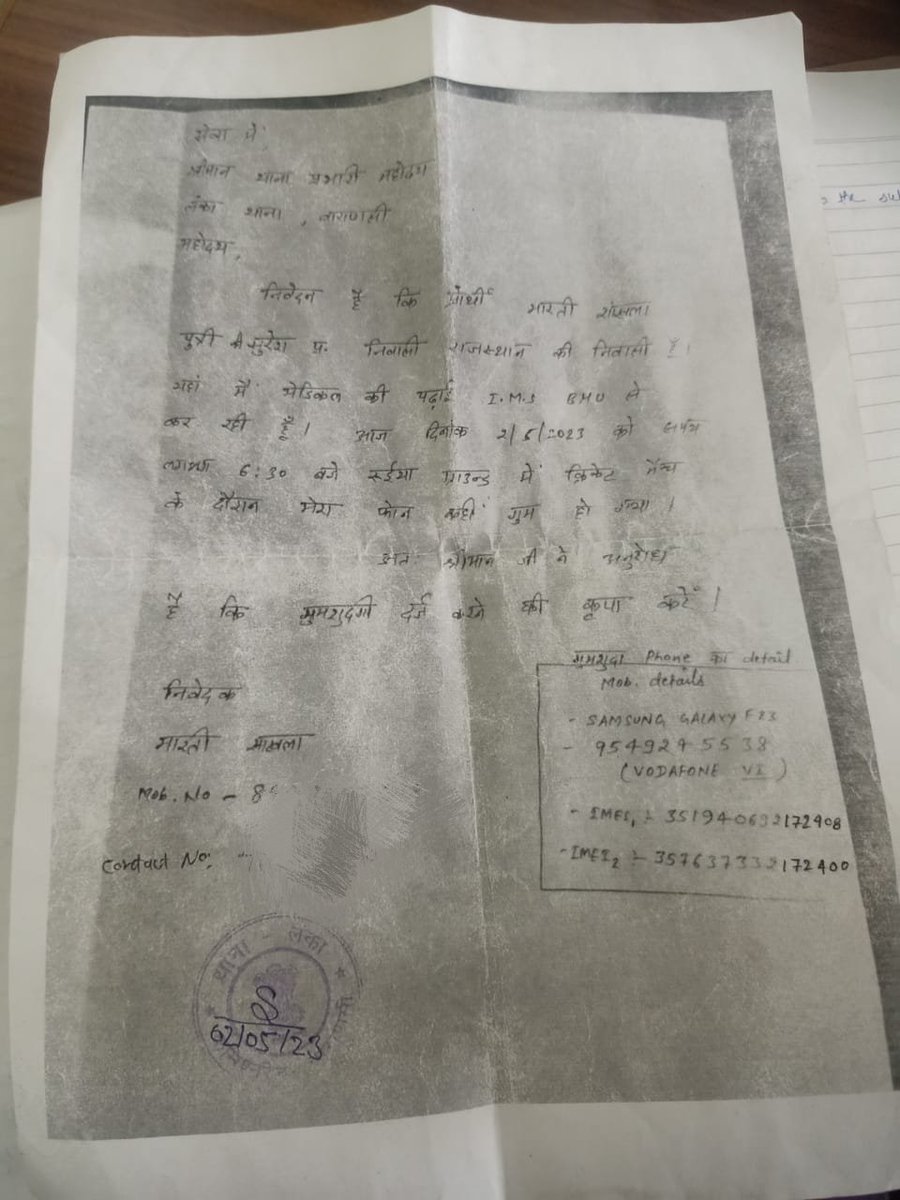 सेवा में,
श्रीमान थाना प्रभारी महोदय
लंका थाना, वाराणसी
महोदय,
निवेदन है कि प्रार्थी भारती
पुत्री सुरेश प्र. निवासी राजस्थान की निवासी हूँ।
यहां मैं मेडिकल की पढ़ाई I.M.S BHU से
कर रही हूँ। आज दिनांक 2/5/2023 को
लगभग 6:30 बजे रूईया ग्राउन्ड में क्रिकेट मैच
के दौरान मेरा फोन कहीं गुम हो गया।
अतः श्रीमान जी से अनुरोध
है कि गुमशुदगी दर्ज करने की कृपा करें।
गुमशुदा Phone का detail
Mob. details
- SAMSUNG GALAXY F23
- 9549245538
(VODAFONE VI)
- IMEI1 :- 351940692172408
- IMEI2 :- 357637332172400
निवेदक
भारती
Mob. No - 8
Contact No:
थाना - लंका
02/05/23